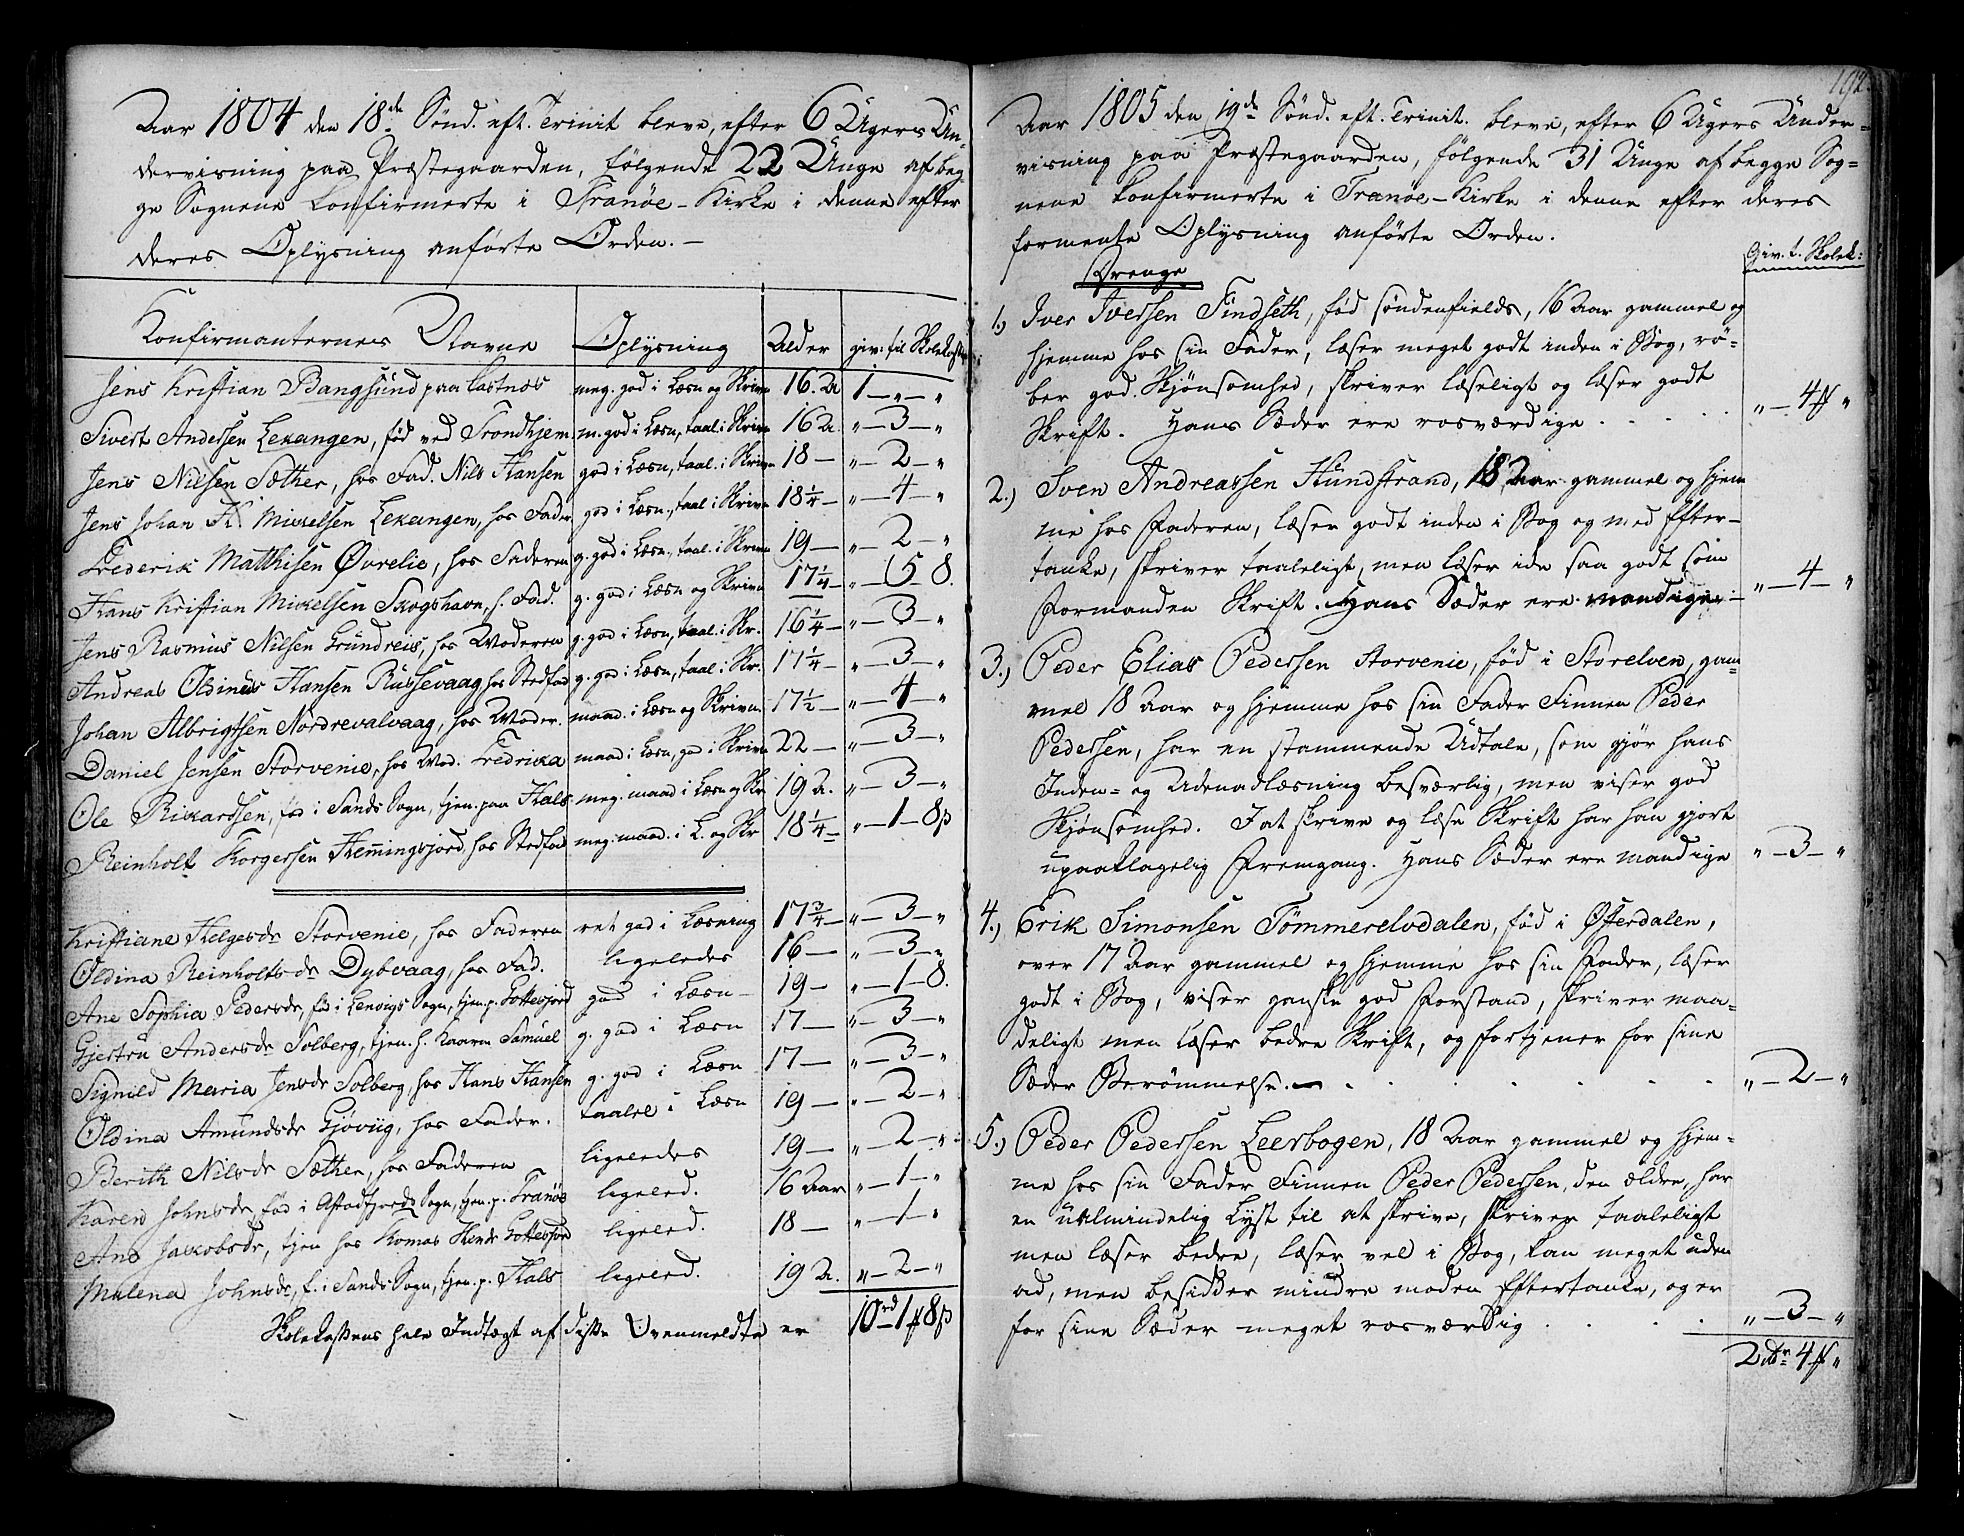 Aar 1804 den 18de Sønd. eft. Trinit bleve, efter 6 Ugers Un-
dervisning paa Præstegaarden, følgende 22 Unge af beg
ge Sognene konfirmerte i Tranøe-Kirke i denne efter
deres Oplysning anførte Orden. -
Konfirmanternes Navne Oplysning Alder giv. til Skolekassen
Jens Kristian Bangsund paa Lastnæs meg. god i Læsn og Skrivn 16. A 1 - " - "
Sivert Andersen Lekangen, fød ved Trondhjem m. god i Læsn, taal. i Skrivn 16 A. " - 3 - "
Jens Nilsen Sæther, hos Fad. Nils Hansen god i Læsn, taal. i Skrivn 18 - " - 2 - "
Jens Johan Mikkelsen Lekangen, hos Fader god i Læsn, taal. i Skrivn 18 1/4 - " - 4 - "
Frederik Matthisen Øvrelie, hos Faderen g. god i Læsn, taal. i Skrivn 19 - " - 2 - "
Hans Kristian Mikkelsen Skogshavn, h. Fad. g. god i Læsn og Skrivn 17 1/4 - " - 5 - 8.
Jens Rasmus Nilsen Grundreis, hos Moderen g. god i Læsn, taal. i Skr. 16 1/4 - " - 3 - "
Andreas Oldinus Hansen Russevaag hos Stedfad g. god i Læsn, taal. i Skr. 17 1/4 - " - 3 - "
Johan Albrigtsen Nordrevalvaag, hos Moder. maad. i Læsn og Skrivn. 17 1/2 - " - 4 - "
Daniel Jensen Storvenie, hos Mod. Fredrika maad i Læsn, god i Skrivn 22 - " - 3 - "
Ole Rikardsen, fød i Sands Sogn, tjen. paa Hals meg. maad i Læsn og Skr 19 A. " - 3 - "
Reinholt Torgersen Hemmingsjord, hos Stedfad meg. maad. i L. og Skr 18 1/4 - " - 1 - 8 ß
Kristiane Helgesdr Storvenie, hos Faderen ret god i Læsning 17 3/4 - " - 3 - "
Oldina Reinholtsdr Dybvaag, hos Fad. ligeledes 16 - " - 3 - "
Ane Sophia Pedersdr, fød i Lenvigs Sogn, tjen. p. Gottesjord god i Læsn - 19 - " - 1 - 8.
Gjertru Andersdr Solberg, tjen. h. Kaarn Samuel g. god i Læsn 17 - " - 3 - "
Signild Maria Jensdr Solberg, hos Hans Hansen g. god i Læsn 17 - " - 3 - "
Oldina Amundsdr Gjøviig, hos Fader. taalel i Læsn 19 - " - 2 - "
Berith Nilsdr Sæther, hos Faderen ligeledes 19 - " - 2 - "
Karen Johnsdr, fød i Astadfjords Sogn, tjen. p. Tranøe ligeled. 16 Aar " - 1 - "
Ane Jakobsdr, tjen hos Tomas Gottesjor ligeled. 18 - " - 1 - "
Malena Johnsdr, f. i Sands Sogn, tjen. p. Hals ligeled. 19 A. " - 2 - "
Skolekassens hele Indtægt af disse Ovenmeldte er 10 rd - 1 # 8 ß
192
Aar 1805 den 19de Sønd. eft. Trinit. bleve, efter 6 Ugers Under-
visning paa Præstegaarden, følgende 31 Unge af begge Sog-
nene konfirmerte i Tranøe-Kirke i denne efter deres
formente Oplysning anførte Orden.
Giv. t. Skolek:
Drenge
1.) Iver Iversen Findseth, fød søndenfields, 16 Aar gammel og
hjemme hos sin Fader, læser meget godt inden i Bog, rø-
ber god Skjønsomhed, skriver læseligt og læser godt
Skrift. Hans Sæder ere rosværdige . . . . " - 4 # "
2.) Sven Andreassen Hundstrand, 18 Aar gammel og hjem
me hos Faderen, læser godt inden i Bog og med Efter-
tanke, skriver taaleligt, men læser ikke saa godt som
Formanden Skrift. Hans Sæder ere mandige. - " - 4 - "
3.) Peder Elias Pedersen Storvenie, fød i Storelven, gam-
mel 18 Aar og hjemme hos sin Fader Finnen Peder
Pedersen, har en stammende Udtale, som gjør hans
Inden- og Udenadlæsning besværlig, men viser god
Skjønsomhed. I at skrive og læse Skrift har han gjort
upaaklagelig Fremgang. Hans Sæder ere mandige " - 3 - "
4.) Erik Simonsen Tømmerelvdalen, fød i Østerdalen,
over 17 Aar gammel og hjemme hos sin Fader, læser
godt i Bog, viser ganske god Forstand, skriver maa-
deligt men læser bedre Skrift, og fortjener for sine
Sæder Berømmelse. - . . . . . . " - 2 - "
5.) Peder Pedersen Leerbogen, 18 Aar gammel og hjem-
me hos sin Fader Finnen Peder Pedersen, den ældre, har
en ualmindelig Lyst til at skrive, skriver taaleligt
men læser bedre, læser vel i Bog, kan meget uden
ad, men besidder mindre moden Eftertanke, og er
for sine Sæder meget rosværdig . . . . " - 3 - "
2 rdr 4 # "